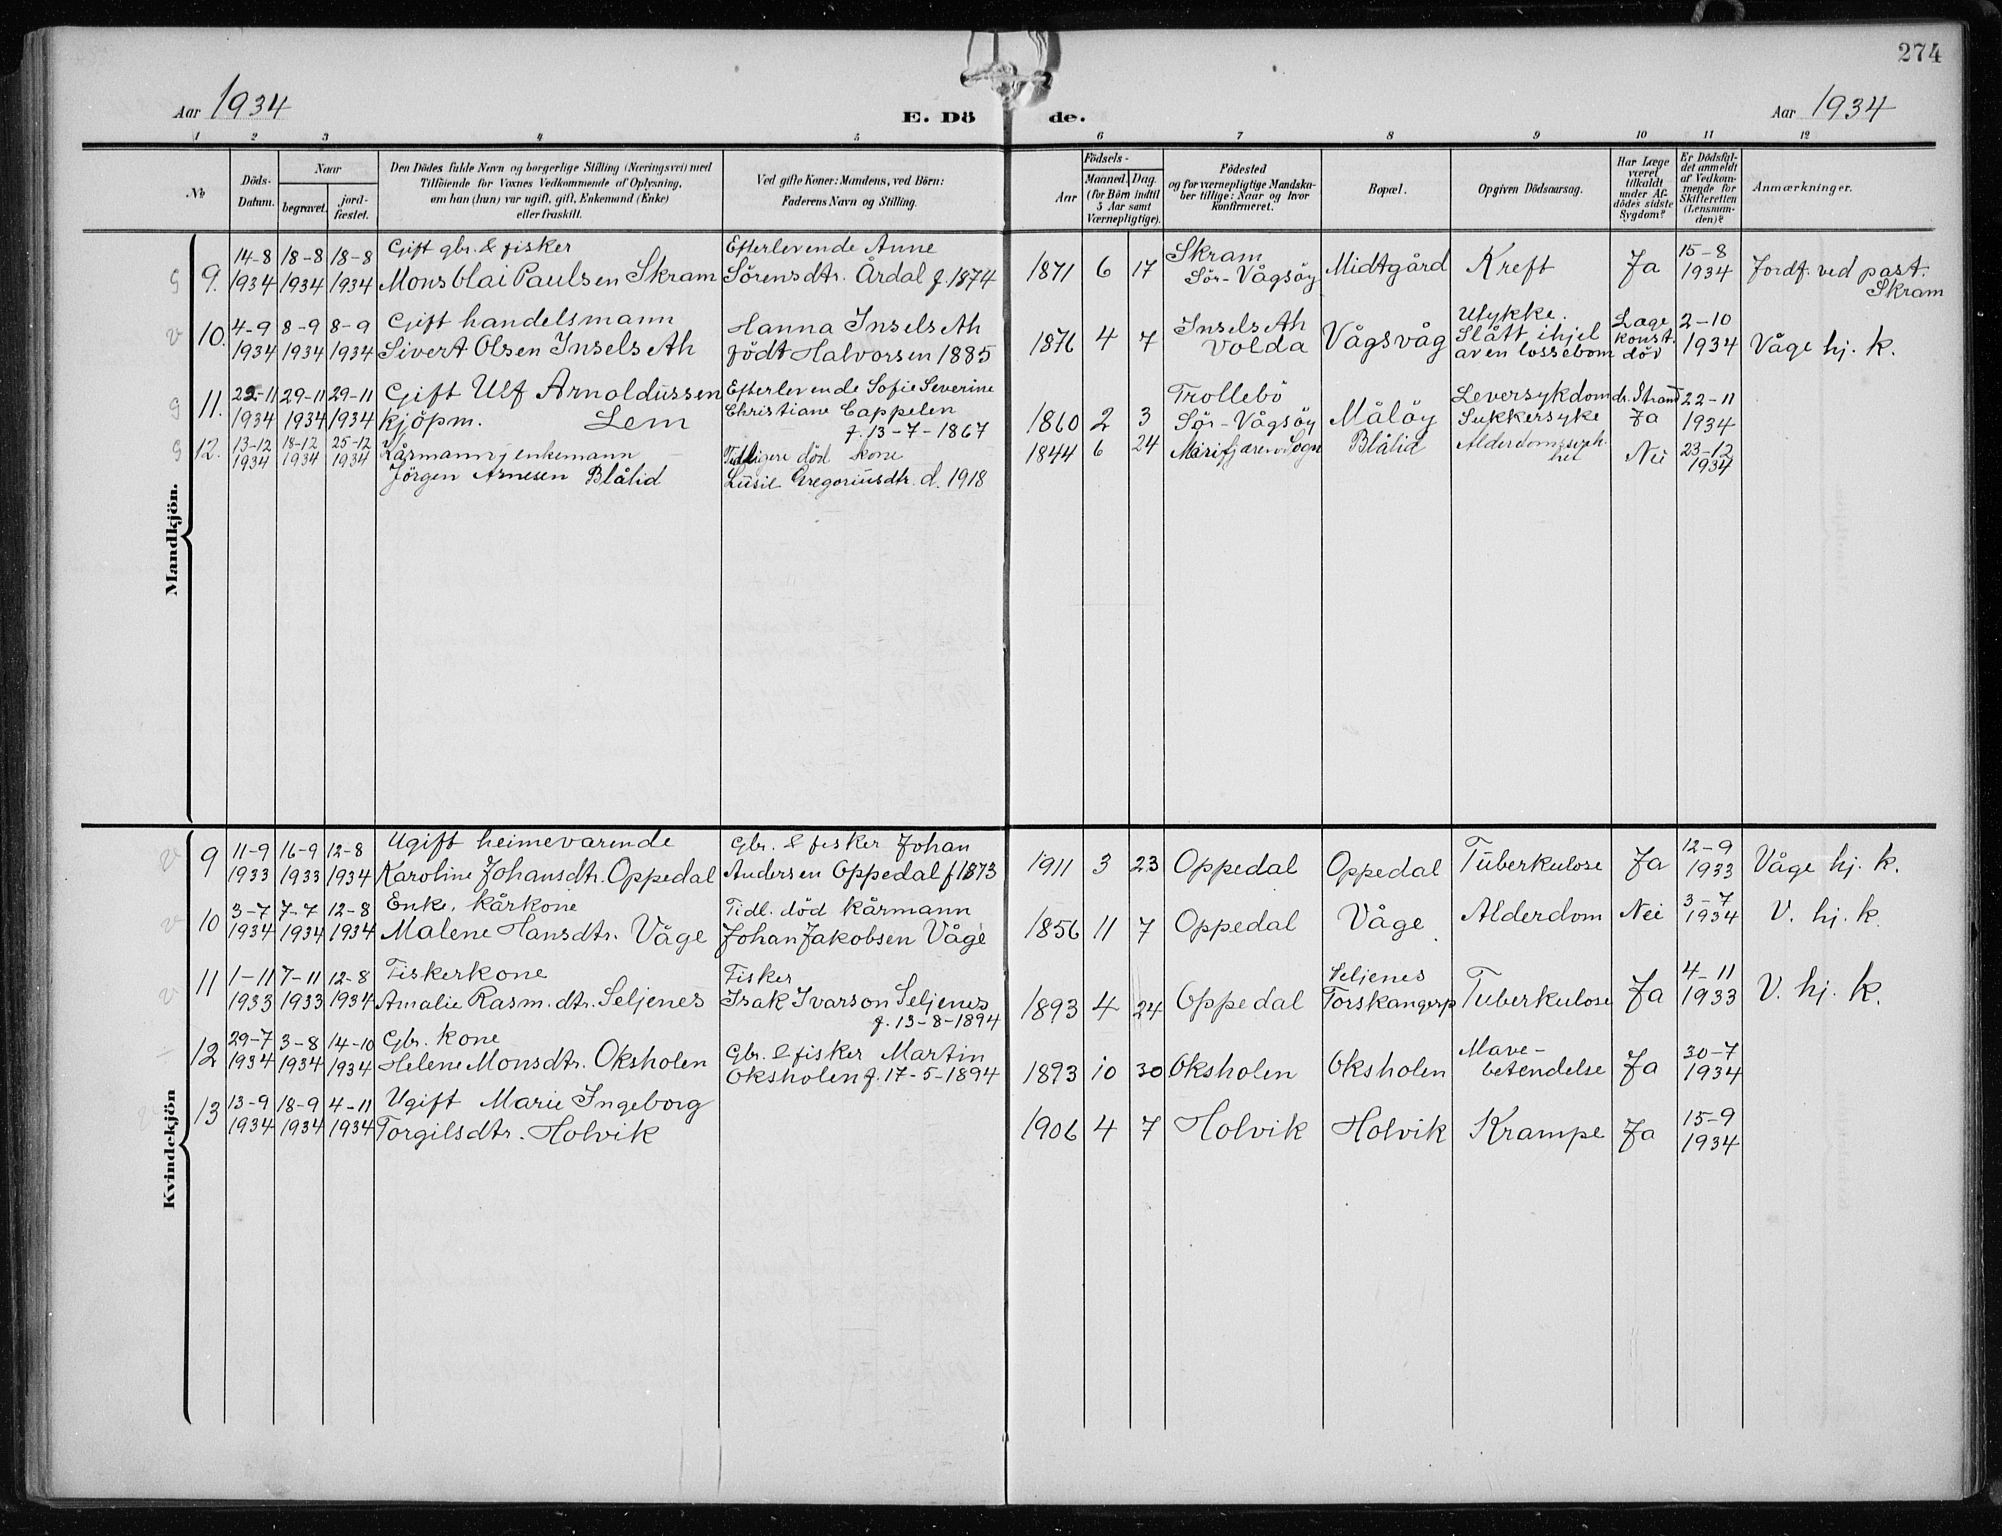 274
Aar 1934
E. Dö de.
Aar 1934
1 2 3 4 5 6 7 8 9 10 11 12
No
Döds-Datum.
Naar
begravet.
jord-fæstet.
Den Dödes fulde Navn og borgerlige Stilling (Næringsvei) med
Tilföiende for Voxnes Vedkommende af Oplysning,
om han (hun) var ugift, gift, Enkemand (Enke)
eller fraskilt.
Ved gifte Koner: Mandens, ved Börn:
Faderens Navn og Stilling.
Födsels-
Aar
Maaned. Dag.
(for Börn indtil
5 Aar samt
Værnepligtige).
Födested
og for værnepligtige Mandska-
ber tillige: Naar og hvor
konfirmeret.
Bopæl.
Opgiven Dödsaarsag.
Har Læge
været
tilkaldt
under Af-
dödes sidste
Sygdom?
Er Dödsfal-
det anmeldt
af Vedkom-
mende for
Skifteretten
(Lensman-
den)?
Anmærkninger.
Mandkjön.
9. 14-8 1934 18-8 1934 18-8 1934 Gift gbr. & fisker
Mons Olai Paulsen Skram
Efterlevende Anne
Sörensdtr. Årdal f. 1874
1871 6 17 Skram
Sör-Vågsöy
Midtgård Kreft Ja 15-8 1934 Jordf. ved past.
Skram
10. 4-9 1934 8-9 1934 8-9 1934 Gift handelsmann
Sivert Olsen Inselseth
Hanna Inselseth
födt Halvorsen 1885
1876 4 7 Inselseth
Volda
Vågsvåg Ulykke.
Slått ihjel
av en lossebom
Læge
konst.
död
2-10 1934 Våge hj. k.
11. 22-11 1934 29-11 1934 29-11 1934 Gift Ulf Arnoldussen
kjöpm. Lem
Efterlevende Sofie Severine
Christiane Cappelen
f. 13-7-1867
1860 2 3 Trollebö
Sör-Vågsöy
Målöy Leversykdom
Sukkersyke
dr. Strand
Ja
22-11 1934
12. 13-12 1934 18-12 1934 25-12 1934 Kårmann, enkemann
Jörgen Arnesen Blålid
Tidligere död kone
Lusie Gregoriusdtr. d. 1918
1844 6 24 Marifjæren Sogn Blålid Nei 23-12 1934
Kvindekjön
9 11-9 1933 16-9 1933 12-8 1934 Ugift heimeværende
Karoline Johansdtr. Oppedal
Gbr. & fisker Johan
Andersen Oppedal f 1873
1911 3 23 Oppedal Oppedal Tuberkulose Ja 12-9 1933 Våge hj. k.
10 3-7 1934 7-7 1934 12-8 1934 Enke, kårkone
Malene Hansdtr. Våge
Tidl. död kårmann
Johan Jakobsen Våge
1856 11 7 Oppedal Våge Alderdom Nei 3-7 1934 V. hj. k.
11 1-11 1933 7-11 1933 12-8 1934 Fiskerkone
Amalie Rasm.dtr. Seljenes
Fisker
Isak Ivarson Seljenes
f. 13-8-1894
1893 4 24 Oppedal Seljenes
Torskangerp
Tuberkulose Ja 4-11 1933 V. hj. k.
12 29-7 1934 3-8 1934 14-10 1934 Gbr. kone
Helene Monsdtr. Oksholen
Gbr. & fisker Martin
Oksholen f. 17-5-1894
1893 10 30 Oksholen Oksholen Mave-
betendelse
Ja 30-7 1934
13 13-9 1934 18-9 1934 4-11 1934 Ugift Marie Ingeborg
Torgilsdtr. Holvik
1906 4 7 Holvik Holvik Krampe Ja 15-9 1934